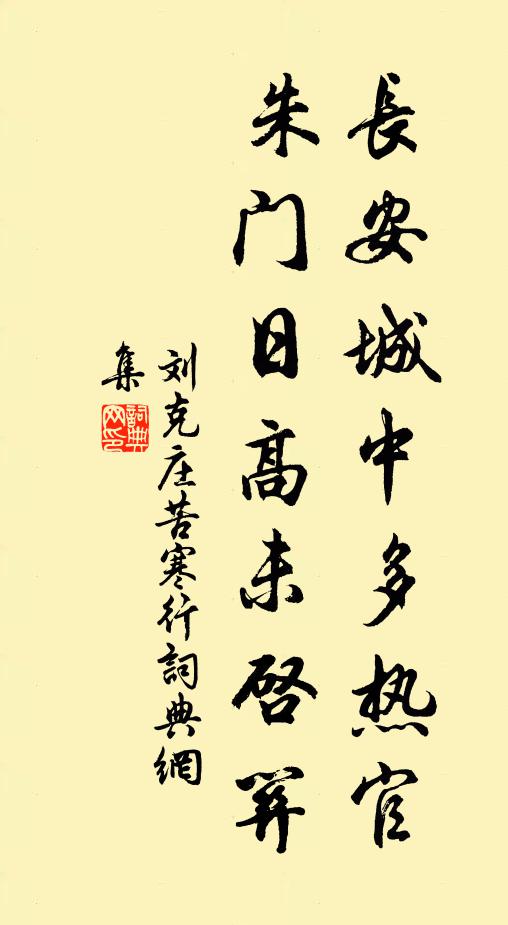 長安城中多热官
朱门日髙未啓関
刘克庄苦寒行詞典網
集
詞典
网印